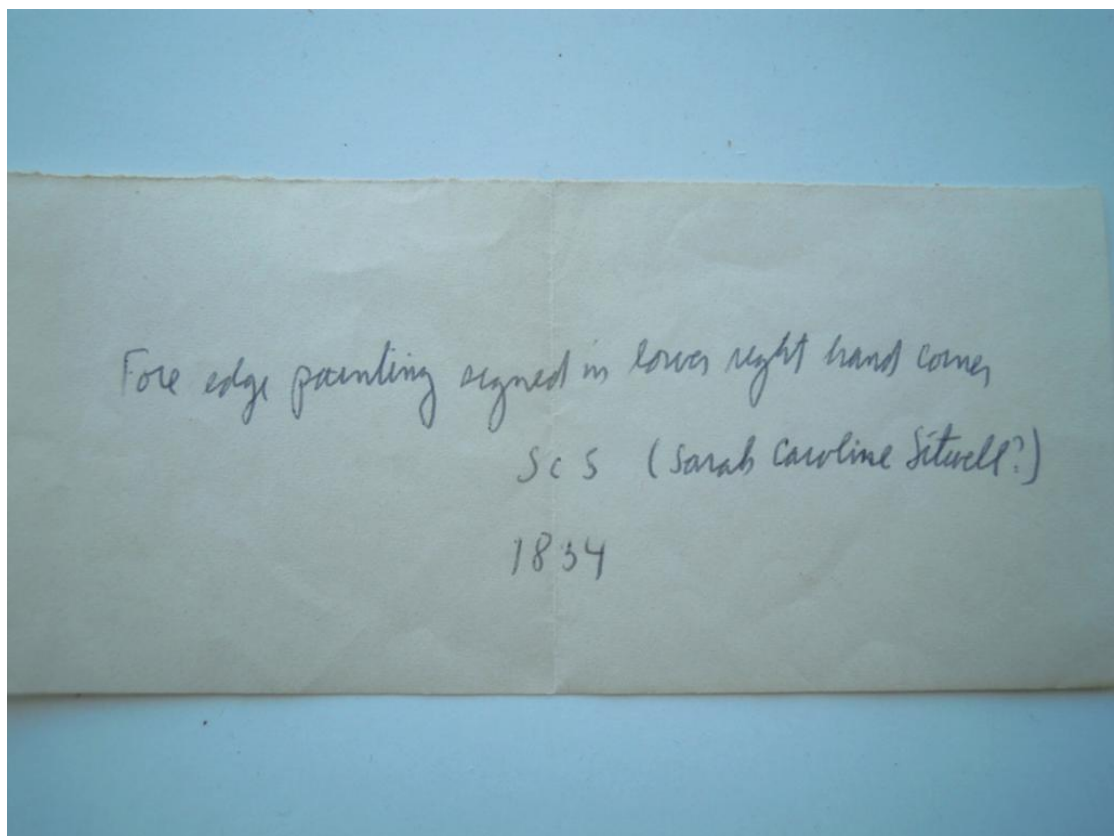 Fore edge painting signed in lower right hand corner
S c S (Sarah Caroline Sitwell?)
1834